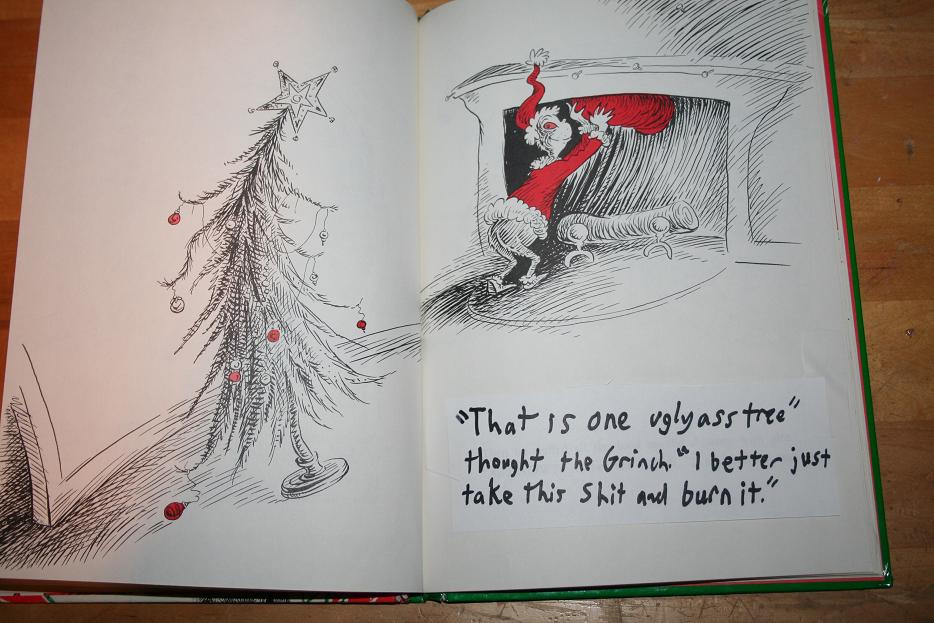 "That is one ugly ass tree"
thought the Grinch. "I better just
take this shit and burn it."